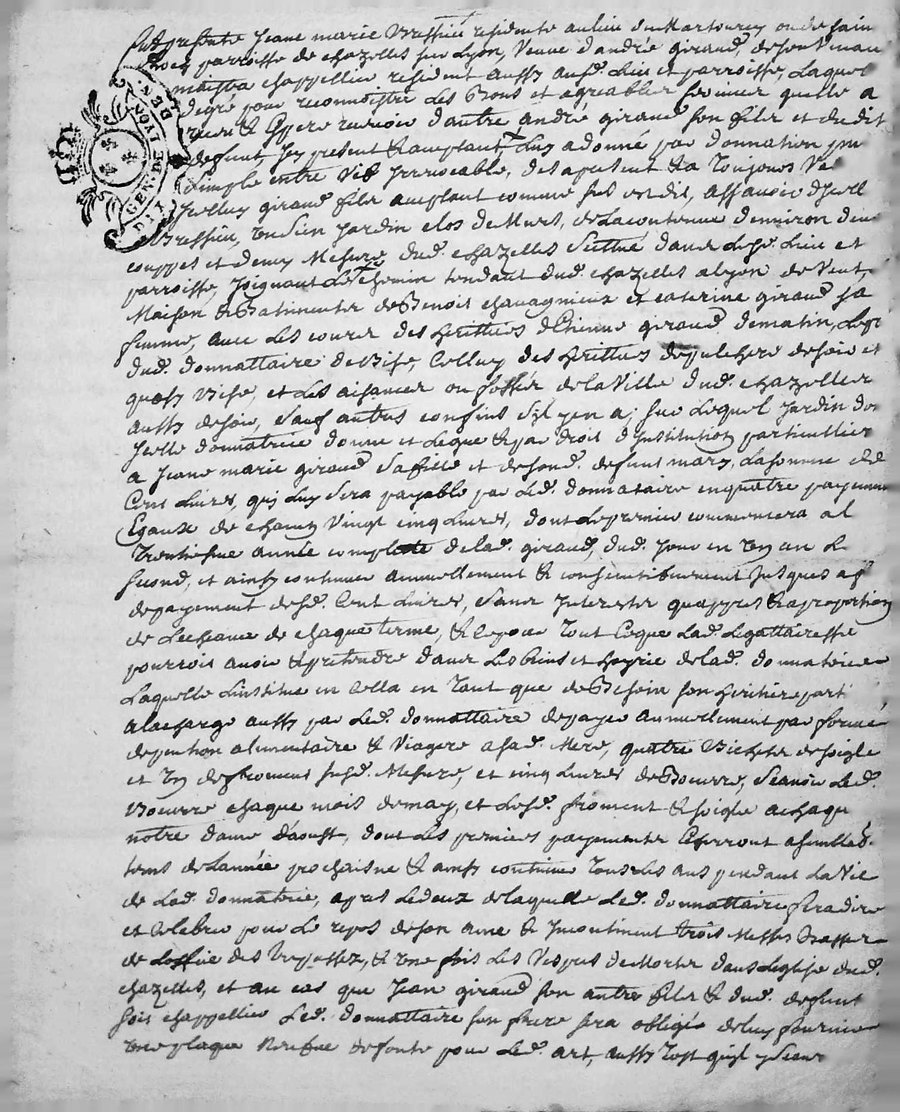 presente Jeane marie residente au lieu du ou de
parroisse de chazelles sur Lyon, Veuve d'andré giraud, de son Vivant
maistre chappellier residant aussy aud. Lieu et parroisse, Laquelle
degré pour reconnoistre Les Bons et agreables services quelle a
receu & Espere recevoir d'autre andré giraud son fils et dudit
deffunt, Icy present & acceptant, Luy a donné par donnation pure
simple entre Vifs Irrevocable, des apresent & a Toujours
Icelluy giraud fils acceptant comme sus est dit, assavoir d'Icelle
un Sien Jardin clos de Murs, de La contenue denviron deux
couppes et demy Mesure dud. chazelles Scittué dans Lesd. Lieu et
parroisse, Joignant Le chemin tendant dud. chazelles a Lyon de Vent,
Maison & Batiments de Benoit chavagnieux et caterine giraud sa
femme, avec Les cours des herittiers d'Etienne giraud de matin,
dud. donnattaire de Bise, Celluy des herittiers de soir et
quasy Bise, et Les aisances ou fossés de la Ville dud. chazelles
aussy de soir, Sauf autres confins S'Il y en a; sur Lequel Jardin
Icelle donnatrice donne et Legue & par droit d'Institution particulliere
a Jeane marie giraud Sa fille et de sond. deffunt mary, La somme de
Cent Livres, qui Luy Sera payable par Led. donnataire en quatre payements
Egaux de chacun Vingt cinq Livres, dont Le premier commencera a La
Trentiesme année complette de lad. giraud, dud. Jour en Un an Le
second, et ainsy continuer annuellement & consecutibvement Jusques a
de payement desd. Cent Livres, Sans Interests quapprès & a proportion
de Lecheance de chaque terme, & ce pour Tout Ceque Lad. Legattairesse
pourrois avoir & pretendre dans Les biens et hoyrie de lad. donnatrice
Laquelle L'institue en Cella en Tant que de Besoin son heritiere part
a la charge aussy par Led. donnattaire de payer annuellement par forme
de pention alimentaire & Viagere a sad. Mere, quatre Bichets de soigle
et Un de froment susd. Mesure, et cinq Livres de Boeurre, Scavoir Led.
Boeurre chaque mois de may, et Lesd. froment & soigle a chaque
notre dame d'aoust, dont Les premiers payements Escherront a semblable
tems de L'année prochaine & ainsy continuer Tous Les ans pendant La Vie
de Lad. donnatrice, apres Le deces de laquelle Led. donnattaire fera dire
et celebrer pour Le repos de son ame & Incontinent trois Messes
de Loffice des Trepassez, & Une fois Les Vespres des Morts dans L'eglise dud.
chazelles, et au cas que Jean giraud son autre fils & dud. deffunt
soit chappellier Led. donnattaire son frere sera obligé de luy fournir
Une plaque Neufve de fonte pour Led. art, aussy Tost quil
GEN. DE LYON
DIX DEN.